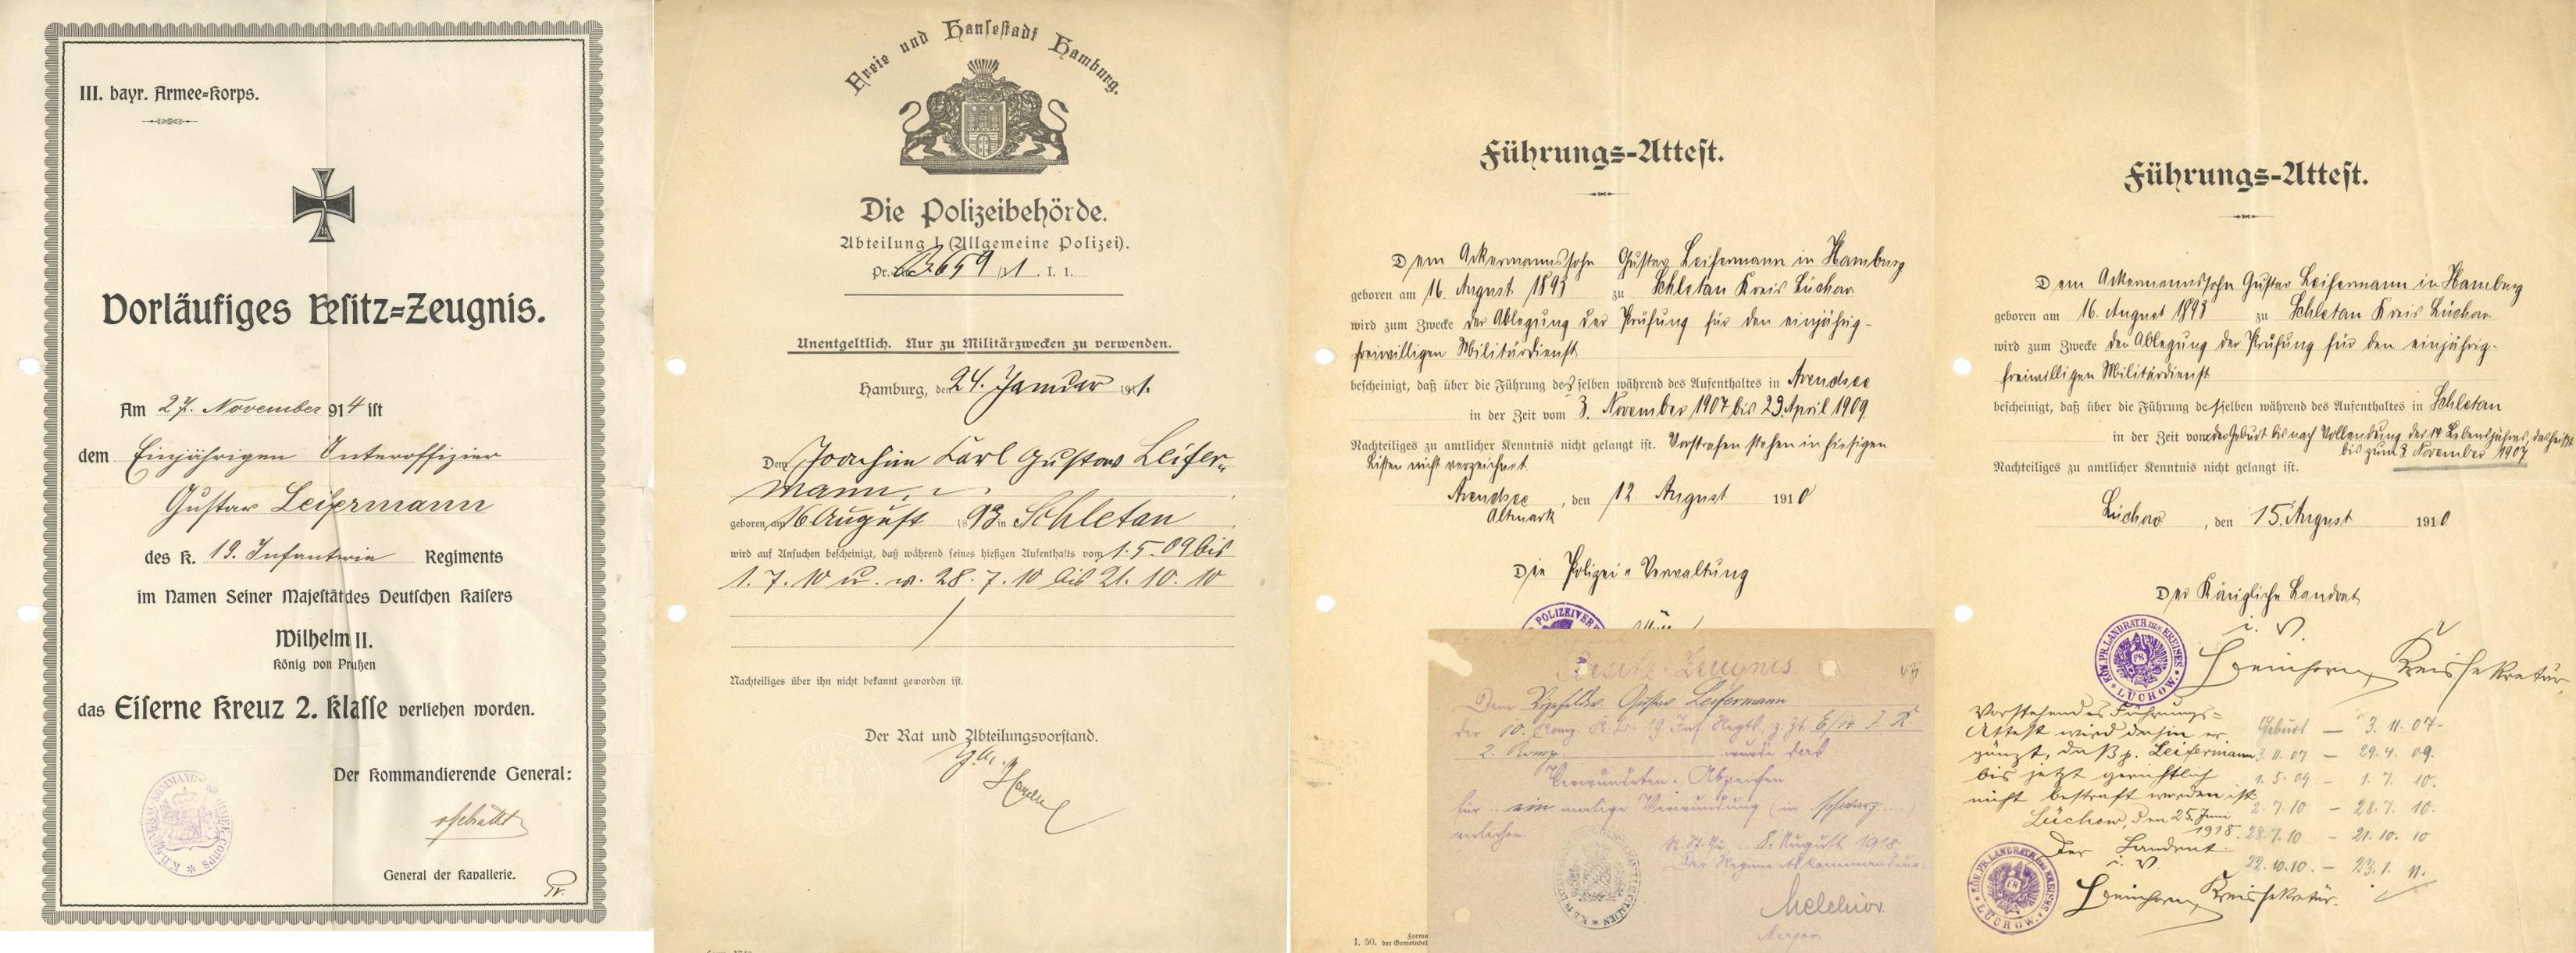 III. bayr. Armee-Korps.
Vorläufiges Besitz-Zeugnis.
Am 27. November 1914 ist
dem Einjährigen Unteroffizier
Gustav Leifermann
des K. 19. Infanterie Regiments
im Namen Seiner Majestät des Deutschen Kaisers
Wilhelm II.
König von Preußen
das Eiserne Kreuz 2. Klasse verliehen worden.
Der Kommandierende General:
General der Kavallerie.
Freie und Hansestadt Hamburg.
Die Polizeibehörde.
Abteilung I (Allgemeine Polizei).
Unentgeltlich. Nur zu Militärzwecken zu verwenden.
Hamburg, den 24. Januar 1911.
Dem Joachim Karl Gustav Leifer-
mann,
geboren am 16 August 1893 in Schletau
wird auf Ansuchen bescheinigt, daß während seines hiesigen Aufenthalts vom 1.5.09 bis
1.7.10 u. v. 28.7.10 bis 21.10.10
Nachteiliges über ihn nicht bekannt geworden ist.
Der Rat und Abteilungsvorstand.
Führungs-Attest.
Dem Ackermannssohn Gustav Leifermann in Hamburg
geboren am 16. August 1893 zu Schletau Kreis Lüchow
wird zum Zwecke der Ablegung der Prüfung für den einjährig-
freiwilligen Militärdienst
bescheinigt, daß über die Führung desselben während des Aufenthaltes in Arendsee
in der Zeit vom 3. November 1907 bis 29. April 1909
Nachteiliges zu amtlicher Kenntnis nicht gelangt ist. Vorstrafen stehen in hiesigen
Listen nicht verzeichnet.
Arendsee, den 12 August 1910
Altmark
Die Polizei-Verwaltung
Besitz-Zeugnis.
Dem Gustav Leifermann
der 10. Komp. K. B. 19 Inf. Regts. z. Zt.
2. Komp. wurde das
Verwundeten-Abzeichen
für ein malige Verwundung (in schwarz)
verliehen.
8. August 1918
Der Regimentskommandeur:
Melchior
Major.
Führungs-Attest.
Dem Ackermannssohn Gustav Leifermann in Hamburg
geboren am 16. August 1893 zu Schletau Kreis Lüchow
wird zum Zwecke der Ablegung der Prüfung für den einjährig-
freiwilligen Militärdienst
bescheinigt, daß über die Führung desselben während des Aufenthaltes in Schletau
in der Zeit von der Geburt bis nach Vollendung des 14 Lebensjahres, das heißt
bis zum 3 November 1907
Nachteiliges zu amtlicher Kenntnis nicht gelangt ist.
Lüchow, den 15. August 1910
Der Königliche Landrat
i. V.
Kreissekretär
KÖN. PR. LANDRATH DES KREISES LÜCHOW
Vorstehendes Führungs=
Attest wird dahin er
gänzt, daß p. Leifermann
bis jetzt gerichtlich
nicht bestraft worden ist
Lüchow, den 25. Juni
1918.
Der Landrat.
i. V.
Kreissekretär.
Geburt — 3.11.07-
3.11.07 — 29.4.09.
1.5.09 — 1.7.10.
2.7.10 — 28.7.10.
28.7.10 — 21.10.10
22.10.10. — 23.1.11.
KÖN. PR. LANDRATH DES KREISES LÜCHOW